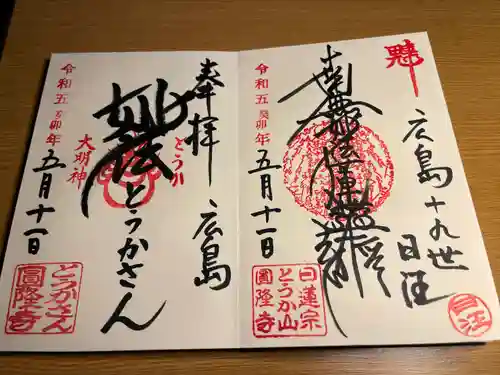 広島十九世
南無妙法蓮華経
令和五癸卯年
五月十一日
日蓮宗
とうか山
圓隆寺
奉拝
広島
妙法
とうかさん
大明神
令和五癸卯年
五月十一日
とうかさん
圓隆寺